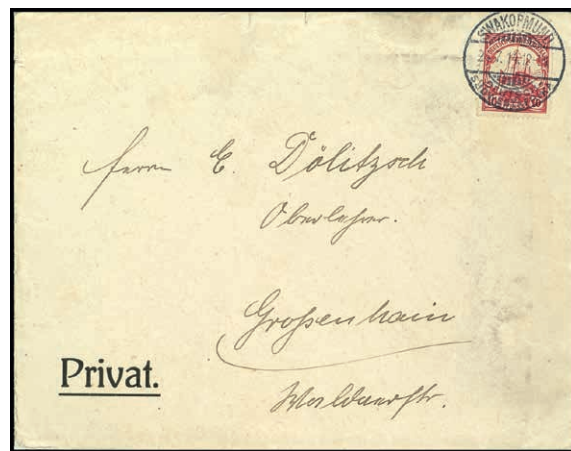 SWAKOPMUND
Herrn E. Dölitzsch
Oberlehrer.
Großenhain
Privat.